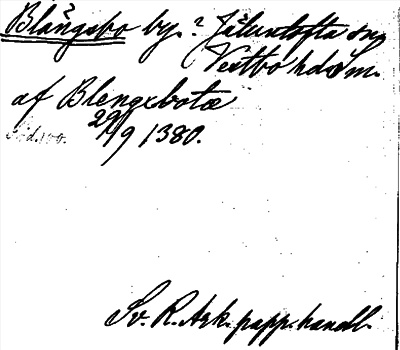 Blängsbo by.? Jälluntofta sn,
Vestbo hd. Sm.
af Blengxbotæ
29/9 1380.
Sv. R. Ark. papp. handl.